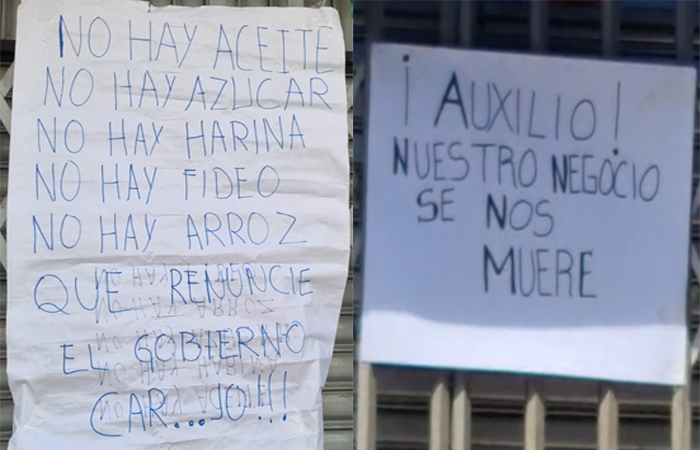 NO HAY ACEITE
NO HAY AZUCAR
NO HAY HARINA
NO HAY FIDEO
NO HAY ARROZ
QUE RENUNCIE
EL GOBIERNO
CAR...JO!!!
¡AUXILIO!
NUESTRO NEGOCIO
SE NOS
MUERE